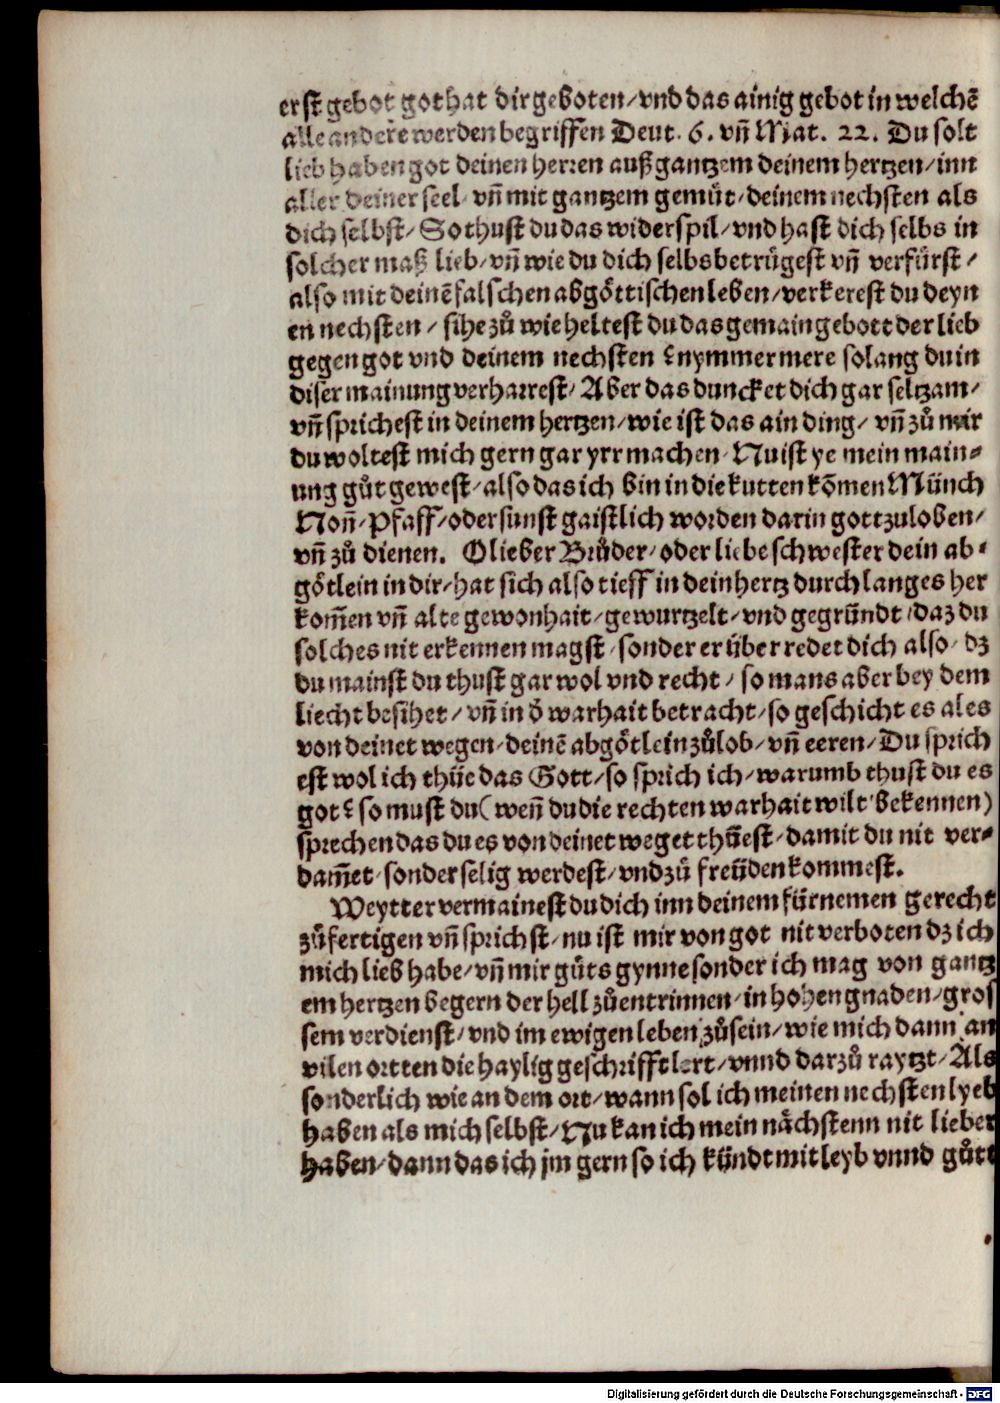 erst gebot got hat dir geboten/ vnd das ainig gebot in welchē
alle andere werden begriffen Deut. 6. vñ Mat. 22. Du solt
lieb haben got deinen herren auß gantzem deinem hertzen/ inn
aller deiner seel/ vñ mit gantzem gemüt/ deinem nechsten als
dich selbst/ So thust du das widerspil/ vnd hast dich selbs in
solcher maß lieb/ vñ wie du dich selbs betrügest vñ verfürst/
also mit deinē falschen abgöttischen leben/ verkerest du deyn
en nechsten/ sihe zů wie heltest du das gemain gebott der lieb
gegen got vnd deinem nechsten ? nymmer mere solang du in
diser mainung verharrest/ Aber das duncket dich gar seltzam/
vñ sprichest in deinem hertzen/ wie ist das ain ding/ vñ zů mir
du woltest mich gern gar yrr machen/ Nu ist ye mein main⸗
ung gůt gewest/ also das ich bin in die kutten kōmen Münch
Noñ/ Pfaff/ oder sunst gaistlich worden darin gott zuloben/
vñ zů dienen. O lieber Brůder/ oder liebe schwester dein ab⸗
götlein in dir/ hat sich also tieff in dein hertz durch langes her
kom̄en vñ alte gewonhait/ gewurtzelt/ vnd gegründt/ daz du
solches nit erkennen magst/ sonder er überredet dich also/ dz
du mainst du thust gar wol vnd recht/ so mans aber bey dem
liecht besihet/ vñ in d̄ warhait betracht/ so geschicht es ales
von deinet wegen/ deinē abgötlein zůlob/ vñ eeren/ Du sprich
est wol ich thüe das Gott/ so sprich ich/ warumb thust du es
got ? so must du (weñ du die rechten warhait wilt bekennen)
sprechen das du es von deinet weget thüest/ damit du nit ver⸗
dam̄et/ sonder selig werdest/ vnd zů freüden kommest.
Weytter vermainest du dich inn deinem fürnemen gerecht
zůfertigen vñ sprichst/ nu ist mir von got nit verboten dz ich
mich lieb habe/ vñ mir gůts gynne sonder ich mag von gantz
em hertzen begern der hell zůentrinnen/ in hohen gnaden/ gros
sem verdienst/ vnd im ewigen leben zůsein/ wie mich dann an
vilen ortten die haylig geschrifft lert/ vnnd darzů raytzt/ Als
sonderlich wie an dem ort/ wann sol ich meinen nechsten lyeb
haben als mich selbst/ Nu kan ich mein nächstenn nit lieber
haben/ dann das ich jm gern so ich kündt mit leyb vnnd gůtt
Digitalisierung gefördert durch die Deutsche Forschungsgemeinschaft - DFG